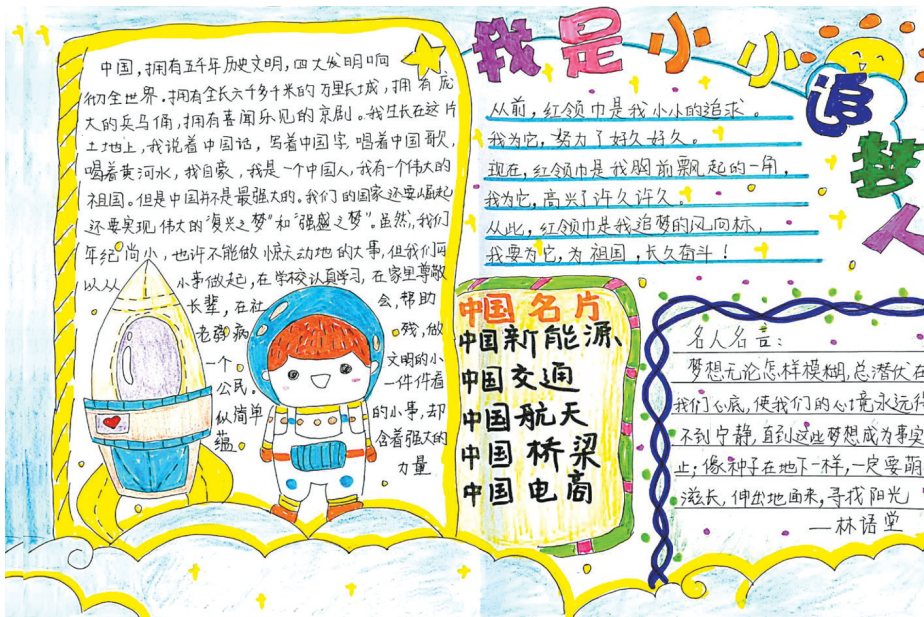 我是小小追梦人
中国,拥有五千年历史文明,四大发明响
彻全世界.拥有全长六千多千米的万里长城,拥有庞
大的兵马俑,拥有喜闻乐见的京剧。我生长在这片
土地上,我说着中国话,写着中国字,唱着中国歌,
喝着黄河水,我自豪,我是一个中国人,我有一个伟大的
祖国。但是中国并不是最强大的。我们的国家还要崛起
还要实现伟大的“复兴之梦”和“强盛之梦”。虽然,我们
年纪尚小,也许不能做惊天动地的大事,但我们可
以从从小事做起,在学校认真学习,在家里尊敬
长辈,在社会,帮助
老弱病残,做
一个文明的小
公民。一件件看
似简单的小事,却
蕴含着强大的
力量
从前,红领巾是我小小的追求。
我为它,努力了好久好久。
现在,红领巾是我胸前飘起的一角,
我为它,高兴了许久许久。
从此,红领巾是我追梦的风向标,
我要为它,为祖国,长久奋斗!
中国名片
中国新能源、
中国交通
中国航天
中国桥梁
中国电商
名人名言:
梦想无论怎样模糊,总潜伏在
我们心底,使我们的心境永远得
不到宁静,直到这些梦想成为事实
止;像种子在地下一样,一定要萌
滋长,伸出地面来,寻找阳光
—林语堂